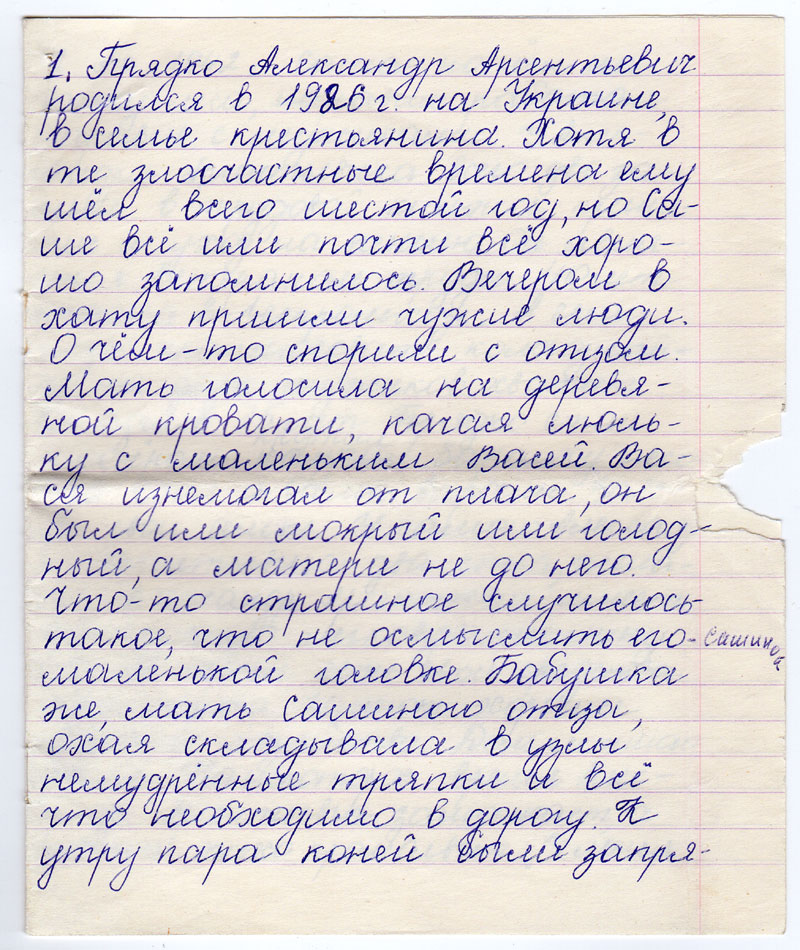 1. Прядко Александр Арсентьевич
родился в 1926 г. на Украине,
в семье крестьянина. Хотя в
те злосчастные времена ему
шёл всего шестой год, но Са-
ше всё или почти всё хоро-
шо запомнилось. Вечером в
хату пришли чужие люди.
О чём-то спорили с отцом.
Мать голосила на деревя-
ной кровати, качая люль-
ку с маленьким Васей. Ва-
ся изнемогал от плача, он
был или мокрый или голод-
ный, а матери не до него.
Что-то страшное случилось
такое, что не осмыслить его- сашиной
маленькой головке. Бабушка
же, мать Сашиного отца,
охая складывала в узлы
немудрённые тряпки и всё
что необходимо в дорогу. К
утру пара коней были запря-